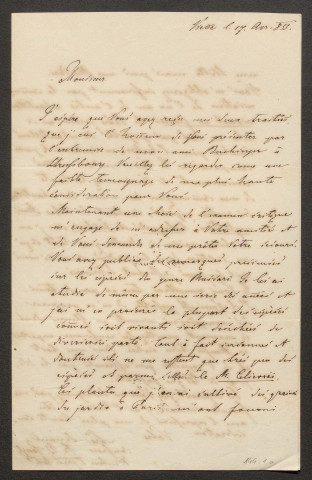 Monsieur
J'espère que Vous avez reçu mes deux traités
que j'eus l'honneur de Vous présenter par
l'entremise de mon ami Buchinger à
Strasbourg. Veuillez les regarder comme une
faible temoignage de ma plus haute
consideration pour Vous.
Maintenant une chose de l'examen
m'engage de m'adresser à Votre amitié et
de Vous demander de me prêter Votre secours.
Vous avez publié des remarques précieuses
sur les espèces du genre
étudié de même par une serie des années et
j'ai me procurer la plupart des espèces
connues soit vivantes soit sechées de
diverses parts tout à fait certaines et
ne me restent que très peu des
espèces et parmi elles le M.
Les plantes que j'en ai cultivé des graines
du jardin à Paris m'ont